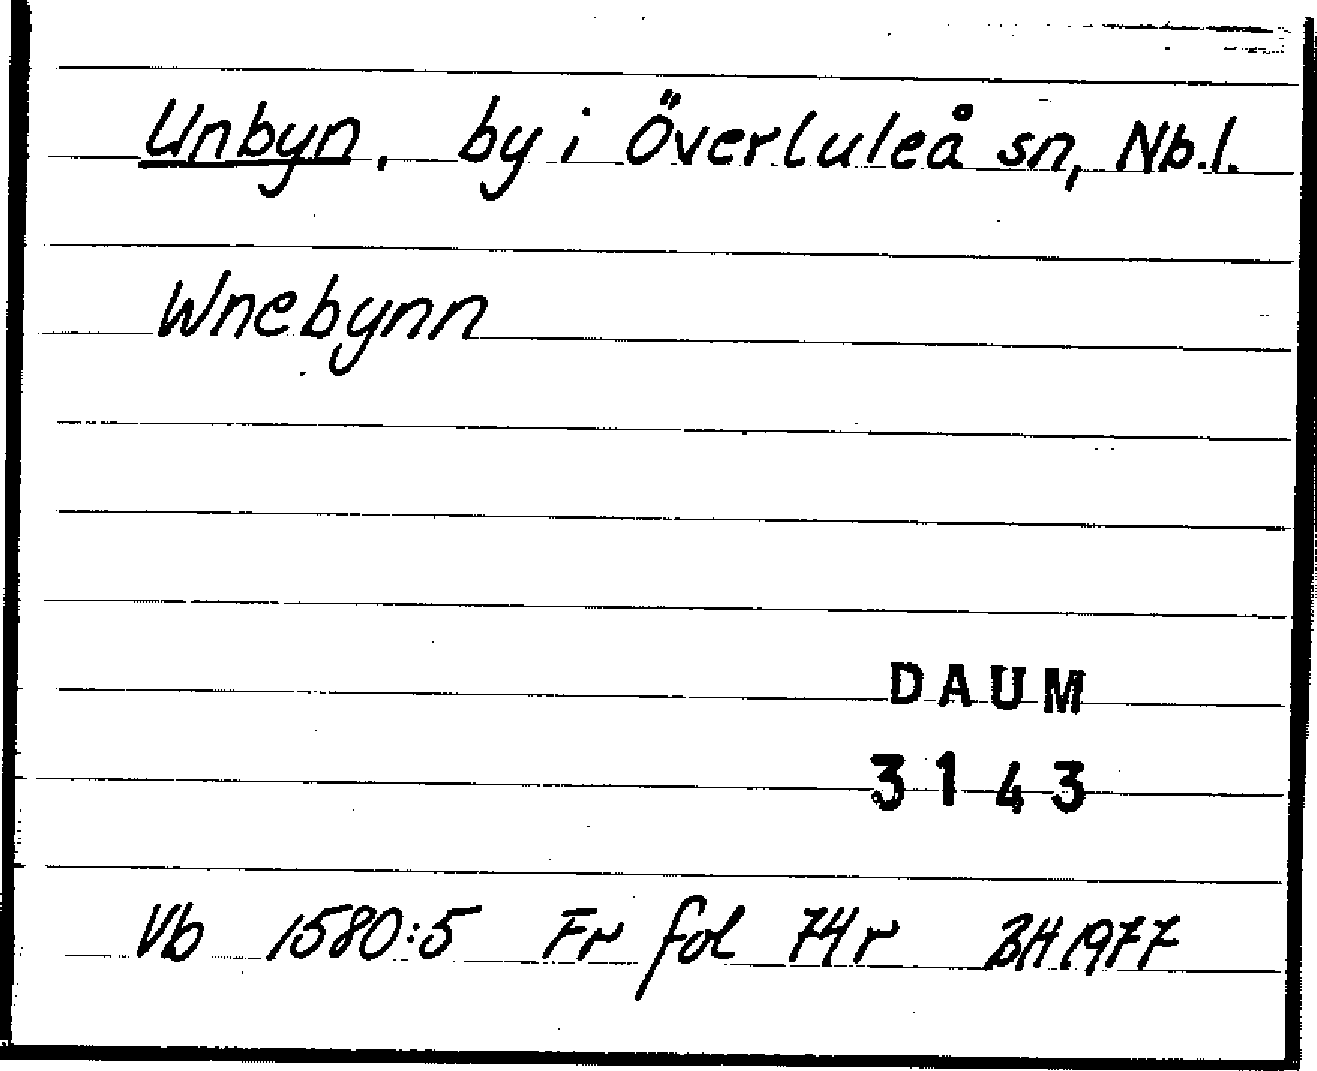 Unbyn. by i Överluleå sn, Nb.l.
Wnebynn
DAUM
3143
Vb 1580:5 Fr fol 74r BH 1977